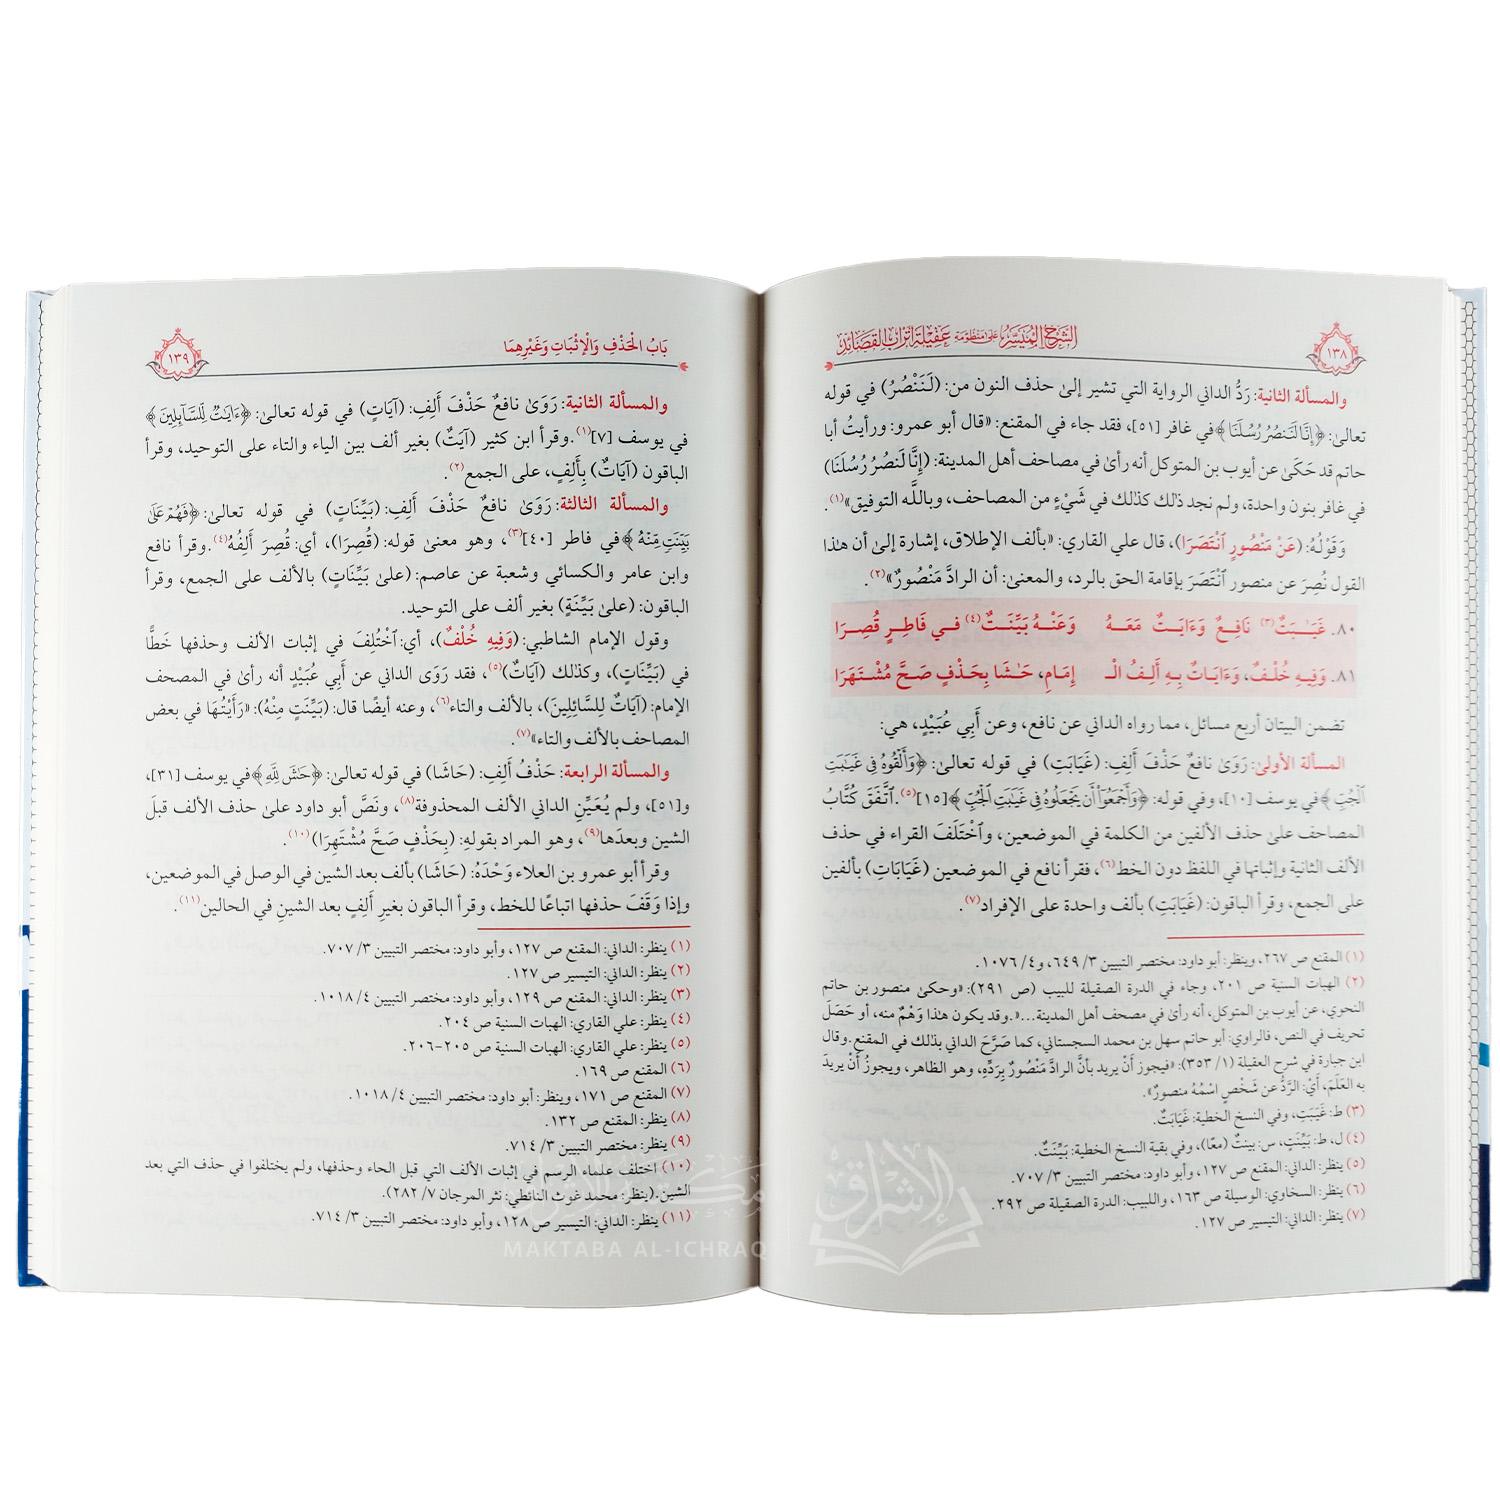 ١٣٨
الشرح الميسر على منظومة عقيلة أتراب القصائد
والمسألة الثانية: رَدُّ الداني الرواية التي تشير إلىٰ حذف النون من: (لَنَنْصُرُ) في قوله
تعالىٰ: ﴿إِنَّا لَنَنصُرُ رُسُلَنَا﴾ في غافر [٥١]، فقد جاء في المقنع: «قال أبو عمرو: ورأيتُ أبا
حاتم قد حَكَىٰ عن أيوب بن المتوكل أنه رأىٰ في مصاحف أهل المدينة: (إِنَّا لَنصُرُ رُسُلَنَا)
في غافر بنون واحدة، ولم نجد ذٰلك كذٰلك في شَيْءٍ من المصاحف، وباللَّه التوفيق»(١).
وَقَوْلُهُ: (عَنْ مَنْصُورٍ ٱنْتَصَرَا)، قال علي القاري: «بألف الإطلاق، إشارة إلىٰ أن هٰذا
القول نُصِرَ عن منصور ٱنْتَصَرَ بإقامة الحق بالرد، والمعنىٰ: أن الرادَّ مَنْصُورٌ»(٢).
٨٠. غَيَـٰبَتٌ(٣) نَافِعٌ وَءَايَتٌ مَعَهُ وَعَنْهُ بَيِّنَتٌ(٤) فِي فَاطِرٍ قُصِرَا
٨١. وَفِيهِ خُلْفٌ، وَءَايَاتٌ بِهِ أَلِفُ الْـ إِمَامِ، حَـٰشَا بِحَذْفٍ صَحَّ مُشْتَهَرَا
تضمن البيتان أربع مسائل، مما رواه الداني عن نافع، وعن أَبِي عُبَيْدٍ، هي:
المسألة الأولىٰ: رَوَىٰ نافعٌ حَذْفَ أَلِفِ: (غَيَابَتِ) في قوله تعالىٰ: ﴿وَأَلْقُوهُ فِي غَيَـٰبَتِ
ٱلْجُبِّ﴾ في يوسف [١٠]، وفي قوله: ﴿وَأَجْمَعُوٓاْ أَن يَجْعَلُوهُ فِي غَيَـٰبَتِ ٱلْجُبِّ﴾ [١٥](٥). ٱتَّفَقَ كُتَّابُ
المصاحف علىٰ حذف الألفين من الكلمة في الموضعين، وٱخْتَلَفَ القراء في حذف
الألف الثانية وإثباتها في اللفظ دون الخط(٦)، فقرأ نافع في الموضعين (غَيَابَاتِ) بألفين
على الجمع، وقرأ الباقون: (غَيَابَتِ) بألف واحدة على الإفراد(٧).
(١) المقنع ص ٢٦٧، وينظر: أبو داود: مختصر التبيين ٣/ ٦٤٩، و٤/ ١٠٧٦.
(٢) الهبات السنية ص ٢٠١، وجاء في الدرة الصقيلة للبيب (ص ٢٩١): «وحكىٰ منصور بن حاتم
النحوي، عن أيوب بن المتوكل، أنه رأىٰ في مصحف أهل المدينة...». وقد يكون هٰذا وَهْمٌ منه، أو حَصَلَ
تحريف في النص، فالراوي: أبو حاتم سهل بن محمد السجستاني، كما صَرَّحَ الداني بذلك في المقنع. وقال
ابن جبارة في شرح العقيلة (١/ ٣٥٣): «فيجوز أَنْ يريد بأنَّ الرادَّ مَنْصُورٌ بِرَدِّهِ، وهو الظاهر، ويجوزُ أَنْ يريدَ
به العَلَمَ، أَيْ: الرَّدُّ عن شَخْصٍ اسْمُهُ منصورٌ».
(٣) ط: غَيَبَتِ، وفي النسخ الخطية: غَيَابَتٌ.
(٤) ل، ط: بَيِّنَتٍ، س: بينتٌ (معًا)، وفي بقية النسخ الخطية: بَيِّنَتٌ.
(٥) ينظر: الداني: المقنع ص ١٢٧، وأبو داود: مختصر التبيين ٣/ ٧٠٧.
(٦) ينظر: السخاوي: الوسيلة ص ١٦٣، واللبيب: الدرة الصقيلة ص ٢٩٢.
(٧) ينظر: الداني: التيسير ص ١٢٧.
الإشراق
بَابُ الْحَذْفِ وَالْإِثْبَاتِ وَغَيْرِهِمَا
١٣٩
والمسألة الثانية: رَوَىٰ نافعٌ حَذْفَ أَلِفِ: (آيَاتٍ) في قوله تعالىٰ: ﴿ءَايَـٰتٌ لِّلسَّآئِلِينَ﴾
في يوسف [٧](١). وقرأ ابن كثير (آيَتٌ) بغير ألف بين الياء والتاء على التوحيد، وقرأ
الباقون (آيَاتٌ) بِأَلِفٍ، على الجمع(٢).
والمسألة الثالثة: رَوَىٰ نافعٌ حَذْفَ أَلِفِ: (بَيِّنَاتٍ) في قوله تعالىٰ: ﴿فَهُمْ عَلَىٰ
بَيِّنَتٍ مِّنْهُ﴾ في فاطر [٤٠](٣)، وهو معنىٰ قوله: (قُصِرَا)، أي: قُصِرَ أَلِفُهُ(٤). وقرأ نافع
وابن عامر والكسائي وشعبة عن عاصم: (علىٰ بَيِّنَاتٍ) بالألف على الجمع، وقرأ
الباقون: (علىٰ بَيِّنَةٍ) بغير ألف على التوحيد.
وقول الإمام الشاطبي: (وَفِيهِ خُلْفٌ)، أي: ٱخْتُلِفَ في إثبات الألف وحذفها خَطًّا
في (بَيِّنَاتٍ)، وكذٰلك (آيَاتٌ)(٥)، فقد رَوَى الداني عن أَبِي عُبَيْدٍ أنه رأىٰ في المصحف
الإمام: (آيَاتٌ لِلسَّائِلِينَ)، بالألف والتاء(٦)، وعنه أيضًا قال: (بَيِّنَتٍ مِنْهُ): «رَأَيْتُهَا في بعض
المصاحف بالألف والتاء»(٧).
والمسألة الرابعة: حَذْفُ أَلِفِ: (حَاشَا) في قوله تعالىٰ: ﴿حَـٰشَ لِلَّهِ﴾ في يوسف [٣١]،
و[٥١]، ولم يُعَيِّنِ الداني الألف المحذوفة(٨)، ونَصَّ أبو داود علىٰ حذف الألف قبلَ
الشين وبعدَها(٩)، وهو المراد بقولهِ: (بِحَذْفٍ صَحَّ مُشْتَهِرَا)(١٠).
وقرأ أبو عمرو بن العلاء وَحْدَهُ: (حَاشَا) بألف بعد الشين في الوصل في الموضعين،
وإذا وَقَفَ حذفها اتباعًا للخط، وقرأ الباقون بغيرِ أَلِفٍ بعد الشينِ في الحالين(١١).
(١) ينظر: الداني: المقنع ص ١٢٧، وأبو داود: مختصر التبيين ٣/ ٧٠٧.
(٢) ينظر: الداني: التيسير ص ١٢٧.
(٣) ينظر: الداني: المقنع ص ١٢٩، وأبو داود: مختصر التبيين ٤/ ١٠١٨.
(٤) ينظر: علي القاري: الهبات السنية ص ٢٠٤.
(٥) ينظر: علي القاري: الهبات السنية ص ٢٠٥-٢٠٦.
(٦) المقنع ص ١٦٩.
(٧) المقنع ص ١٧١، وينظر: أبو داود: مختصر التبيين ٤/ ١٠١٨.
(٨) ينظر: المقنع ص ١٣٢.
(٩) ينظر: مختصر التبيين ٣/ ٧١٤.
(١٠) اختلف علماء الرسم في إثبات الألف التي قبل الحاء وحذفها، ولم يختلفوا في حذف التي بعد
الشين. (ينظر: محمد غوث النائطي: نثر المرجان ٧/ ٢٨٢).
(١١) ينظر: الداني: التيسير ص ١٢٨، وأبو داود: مختصر التبيين ٣/ ٧١٤.
مكتبة الإشراق
MAKTABA AL-ICHRAQ